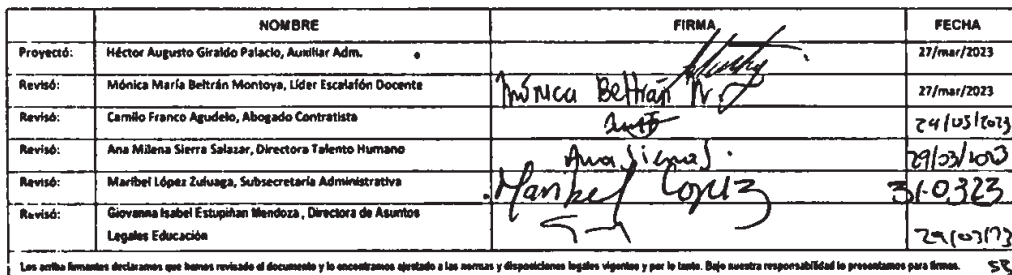 NOMBRE FIRMA FECHA
Proyectó: Héctor Augusto Giraldo Palacio, Auxiliar Adm. 27/mar/2023
Revisó: Mónica María Beltrán Montoya, Líder Escalafón Docente Mónica Beltrán M. 27/mar/2023
Revisó: Camilo Franco Agudelo, Abogado Contratista
Revisó: Ana Milena Sierra Salazar, Directora Talento Humano Ana Sierra S. 29/03/2023
Revisó: Maribel López Zuluaga, Subsecretaría Administrativa Maribel López 310323
Revisó: Giovanna Isabel Estupiñan Mendoza, Directora de Asuntos
Legales Educación
Los arriba firmantes declaramos que hemos revisado el documento y lo encontramos ajustado a las normas y disposiciones legales vigentes y por lo tanto. Bajo nuestra responsabilidad lo presentamos para firmes.